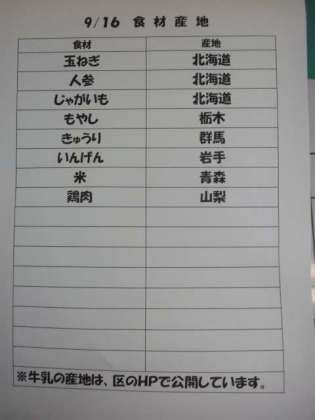 9/16 食材産地
食材 産地
玉ねぎ 北海道
人参 北海道
じゃがいも 北海道
もやし 栃木
きゅうり 群馬
いんげん 岩手
米 青森
鶏肉 山梨
※牛乳の産地は、区のHPで公開しています。